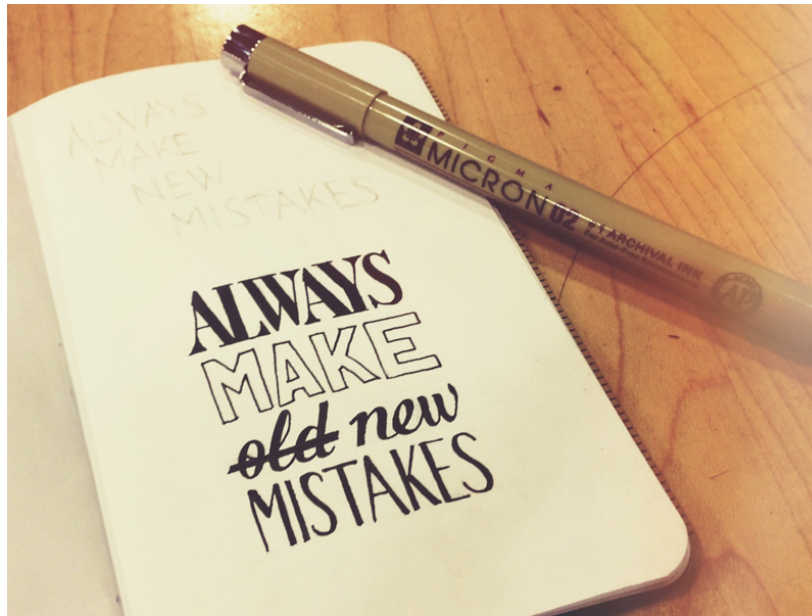 ALWAYS
MAKE
NEW
MISTAKES
ALWAYS
MAKE
old new
MISTAKES
PIGMA
MICRON 02
ARCHIVAL INK
AP